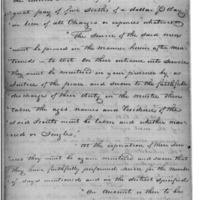 quest pay of five sixths of a dollar Pr day
in lieu of all Charges or expences whatsoever
"The service of the said men
must be proved in the manner herein after men-
tioned — to wit. On their entrance into service
they must be mustered in your presence by a
Justice of the peace and sworn to the faithful
discharge of their duty, in the muster, then
taken the ages names and residence of the
said Scouts must be taken and whether mar-
ried or Single.
"At the expiration of their Ser-
vice they must be again mustered and sworn that
they have faithfully performed service for the number
of days mentioned and in the district specified
An Account is then to be